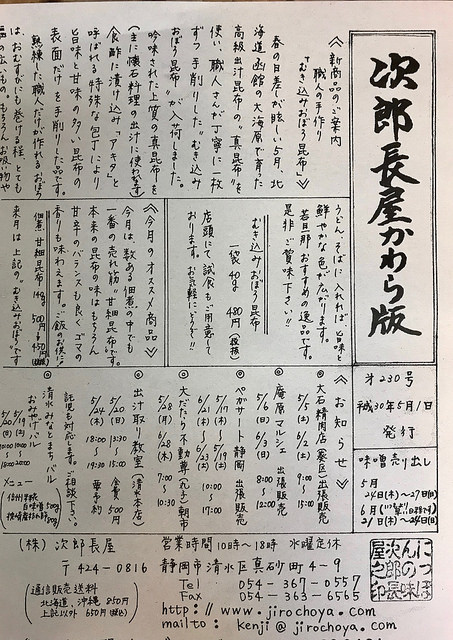 次郎長屋かわら版
才230号
平成30年5月1日
発行
味噌売り出し
5月
24日(木)〜27日(日)
6月
21日(木)〜24日(日)
《新商品のご案内
職人の手作り
"むき込みおぼろ昆布"》
春の日差しが眩しい5月、北
海道函館の大海原で育った
高級出汁昆布の"真昆布"を
使い、職人さんが丁寧に一枚
ずつ手削りした"むき込み
おぼろ昆布"が入荷しました。
吟味された上質の真昆布を
(主に懐石料理の出汁に使われる)
食酢に漬け込み「アキタ」と
呼ばれる特殊な包丁により
旨味と甘味の多い、昆布の
表面だけを手削りした品です。
熟練した職人だけが作れるおぼろ
は、おむすびにも巻ける程、とても
うどん・そばに入れれば、旨味と
鮮やかな色が広がります。
若旦那おすすめの逸品です。
是非ご賞味下さい!!
むき込みおぼろ昆布
一袋40g 480円(税抜)
店頭にて試食もご用意して
おります。お気軽にどうぞ!!
《今月のオススメ商品》
今月は、数ある佃煮の中でも
一番の売れ筋"甘細昆布"です。
本来の昆布の味はもちろん
甘辛のバランスも良くゴマの
香りも味わえます。ご飯のお供に!
佃煮 甘細昆布 140g 500円→450円(税抜)
来月は上記の"むき込みおぼろ"です
《お知らせ》
◎大石精肉店(葵区)出張販売
5/5(土) 6/2(土) 9:00〜15:00
◎庵原マルシェ 出張販売
5/6(日) 6/3(日) 8:00〜12:00
◎ぺがサート静岡 出張販売
5/17(木)
6/21(木)
◎大だたら不動尊(れき)朝市
5/28(月) 6/28(木) 7:00〜10:30
◎出汁取り教室(清水本店)
5/20(日) 13:30〜15:00 会費500円
5/24(木) 18:00〜19:30 要予約
託児も対応します。ご相談下さい。
◎清水みなとまちバル
おみやげバル
5/19(土)
5/20(日) 10:00〜18:00
メニュー
(株)次郎長屋 営業時間10時〜18時 水曜定休
〒424-0816 静岡市清水区真砂町4-9
(通信販売送料
北海道、沖縄 850円
上記以外 650円(税込))
Tel 054-367-0557
Fax 054-363-6565
http://www.jirochoya.com
mailto: kenji@jirochoya.com
にっぽんの味
次郎長屋之印